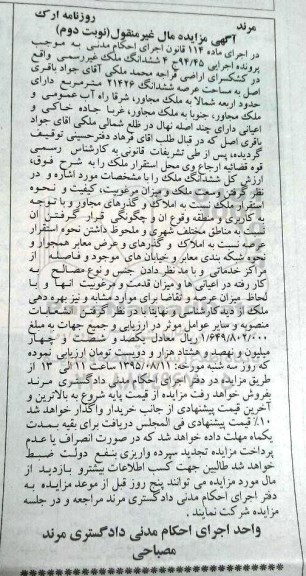 روزنامه ارک
مرند
آگهی مزایده مال غیرمنقول(نوبت دوم)
در اجرای ماده ۱۱۴ قانون اجرای احکام مدنی به موجب
پرونده اجرایی ۹۴/۴۵ج ۴ ششدانگ ملک غیررسمی واقع
در کشکسرای اراضی قراجه محمد ملکی آقای جواد باقری
اصل به مساحت عرصه ششدانگ ۲۱۴۲۶ مترمربع دارای
حدود اربعه شمالا به ملک مجاور، شرقا راه آب عمومی و
ملک مجاور، جنوبا به ملک مجاور، غربا جاده خاکی و
اعیانی دارای چند اصله نهال در ظله شمالی ملکی آقای جواد
باقری اصل که در قبال طلب آقای فرهاد دفترحسینی توقیف
گردیده، پس از طی تشریفات قانونی به کارشناس رسمی
قوه قضائیه ارجاع وی محل استقرار ملک را به شرح فوق،
ارزش کل ششدانگ ملک را با مشخصات مورد اشاره و در
نظر گرفتن وسعت ملک و میزان مرغوبیت، کیفیت و نحوه
استقرار ملک نسبت به املاک و گذرهای مجاور و با توجه
به کاربری و منطقه وقوع آن و چگونگی قرار گرفتن آن
نسبت به مناطق مختلف شهری و ملحوظ داشتن نحوه استقرار
عرصه نسبت به املاک و گذرهای و عرض معابر همجوار و
نحوه شبکه بندی معابر و خیابان های موجود و فاصله از
مراکز خدماتی و با مد نظر دادن جنس و نوع مصالح به
کار رفته در اعیانی ها و میزان قدمت و مرغوبیت آنها و با
لحاظ میزان عرصه و تقاضا برای موارد مشابه و نیز بهره دهی
ملک از دید کارشناسی و نهایتا با در نظر گرفتن انشعابات
منصوبه و سایر عوامل موثر در ارزیابی و جمیع جهات به مبلغ
۱/۶۴۹/۸۰۲/۰۰۰ ریال معادل یکصد و شصت و چهار
میلیون و نهصد و هشتاد هزار و دویست تومان ارزیابی نموده
که روز سه شنبه مورخه: ۱۳۹۵/۰۸/۱۱ ساعت ۱۱ الی ۱۳ از
طریق مزایده در دفتر اجرای احکام مدنی دادگستری مرند
بفروش خواهد رفت مزایده از قیمت پایه شروع به بالاترین و
آخرین قیمت پیشنهادی از جانب خریدار واگذار خواهد شد
۱۰٪ قیمت پیشنهادی فی المجلس دریافت برای بقیه بمدت
یکماه مهلت داده خواهد شد که در صورت انصراف یا عدم
پرداخت مزایده تجدید سپرده واریزی بنفع دولت ضبط
خواهد شد طالبین جهت کسب اطلاعات بیشتر و بازدید از
مال مورد مزایده می توانند پنج روز قبل از موعد مزایده به
دفتر اجرای احکام مدنی دادگستری مرند مراجعه و در جلسه
مزایده شرکت نمایند.
واحد اجرای احکام مدنی دادگستری مرند
مصباحی